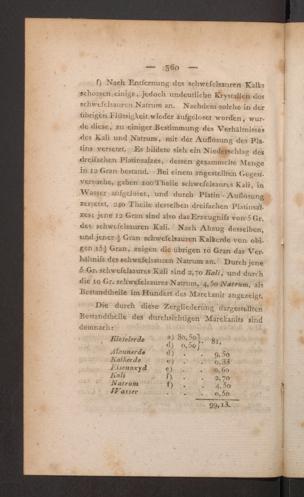 — 360 —
f) Nach Entfernung des schwefelsauren Kalks
schossen einige, jedoch undeutliche Krystallen des
schwefelsauren Natrum an. Nachdem solche in der
übrigen Flüssigkeit wieder aufgelöset worden, wur-
de diese, zu einiger Bestimmung des Verhältnisses
des Kali und Natrum, mit der Auflösung des Pla-
tins versetzt. Es bildete sich ein Niederschlag des
dreifachen Platinsalzes, dessen gesammelte Menge
in 12 Gran bestand. Bei einem angestellten Gegen-
versuche, gaben 100 Theile schwefelsaures Kali, in
Wasser aufgelöset, und durch Platin-Auflösung
zersetzt, 240 Theile desselben dreifachen Platinsal-
zes; jene 12 Gran sind also das Erzeugniß von 5 Gr.
des schwefelsauren Kali. Nach Abzug desselben,
und jener ½ Gran schwefelsauren Kalkerde von obi-
gen 15½ Gran, zeigen die übrigen 10 Gran das Ver-
hältniß des schwefelsauren Natrum an. Durch jene
5 Gr. schwefelsaures Kali sind 2,70 Kali, und durch
die 10 Gr. schwefelsaures Natrum, 4,50 Natrum, als
Bestandtheile im Hundert des Marekanit angezeigt.
Die durch diese Zergliederung dargestellten
Bestandtheile des durchsichtigen Marekanits sind
demnach:
Kieselerde a) 80,50 } 81,
d) 0,50
Alaunerde d) . . 9,50
Kalkerde e) . . 0,33
Eisenoxyd e) . . 0,60
Kali f) . . 2,70
Natrum f) . . 4,50
Wasser . . . 0,50
99,13.